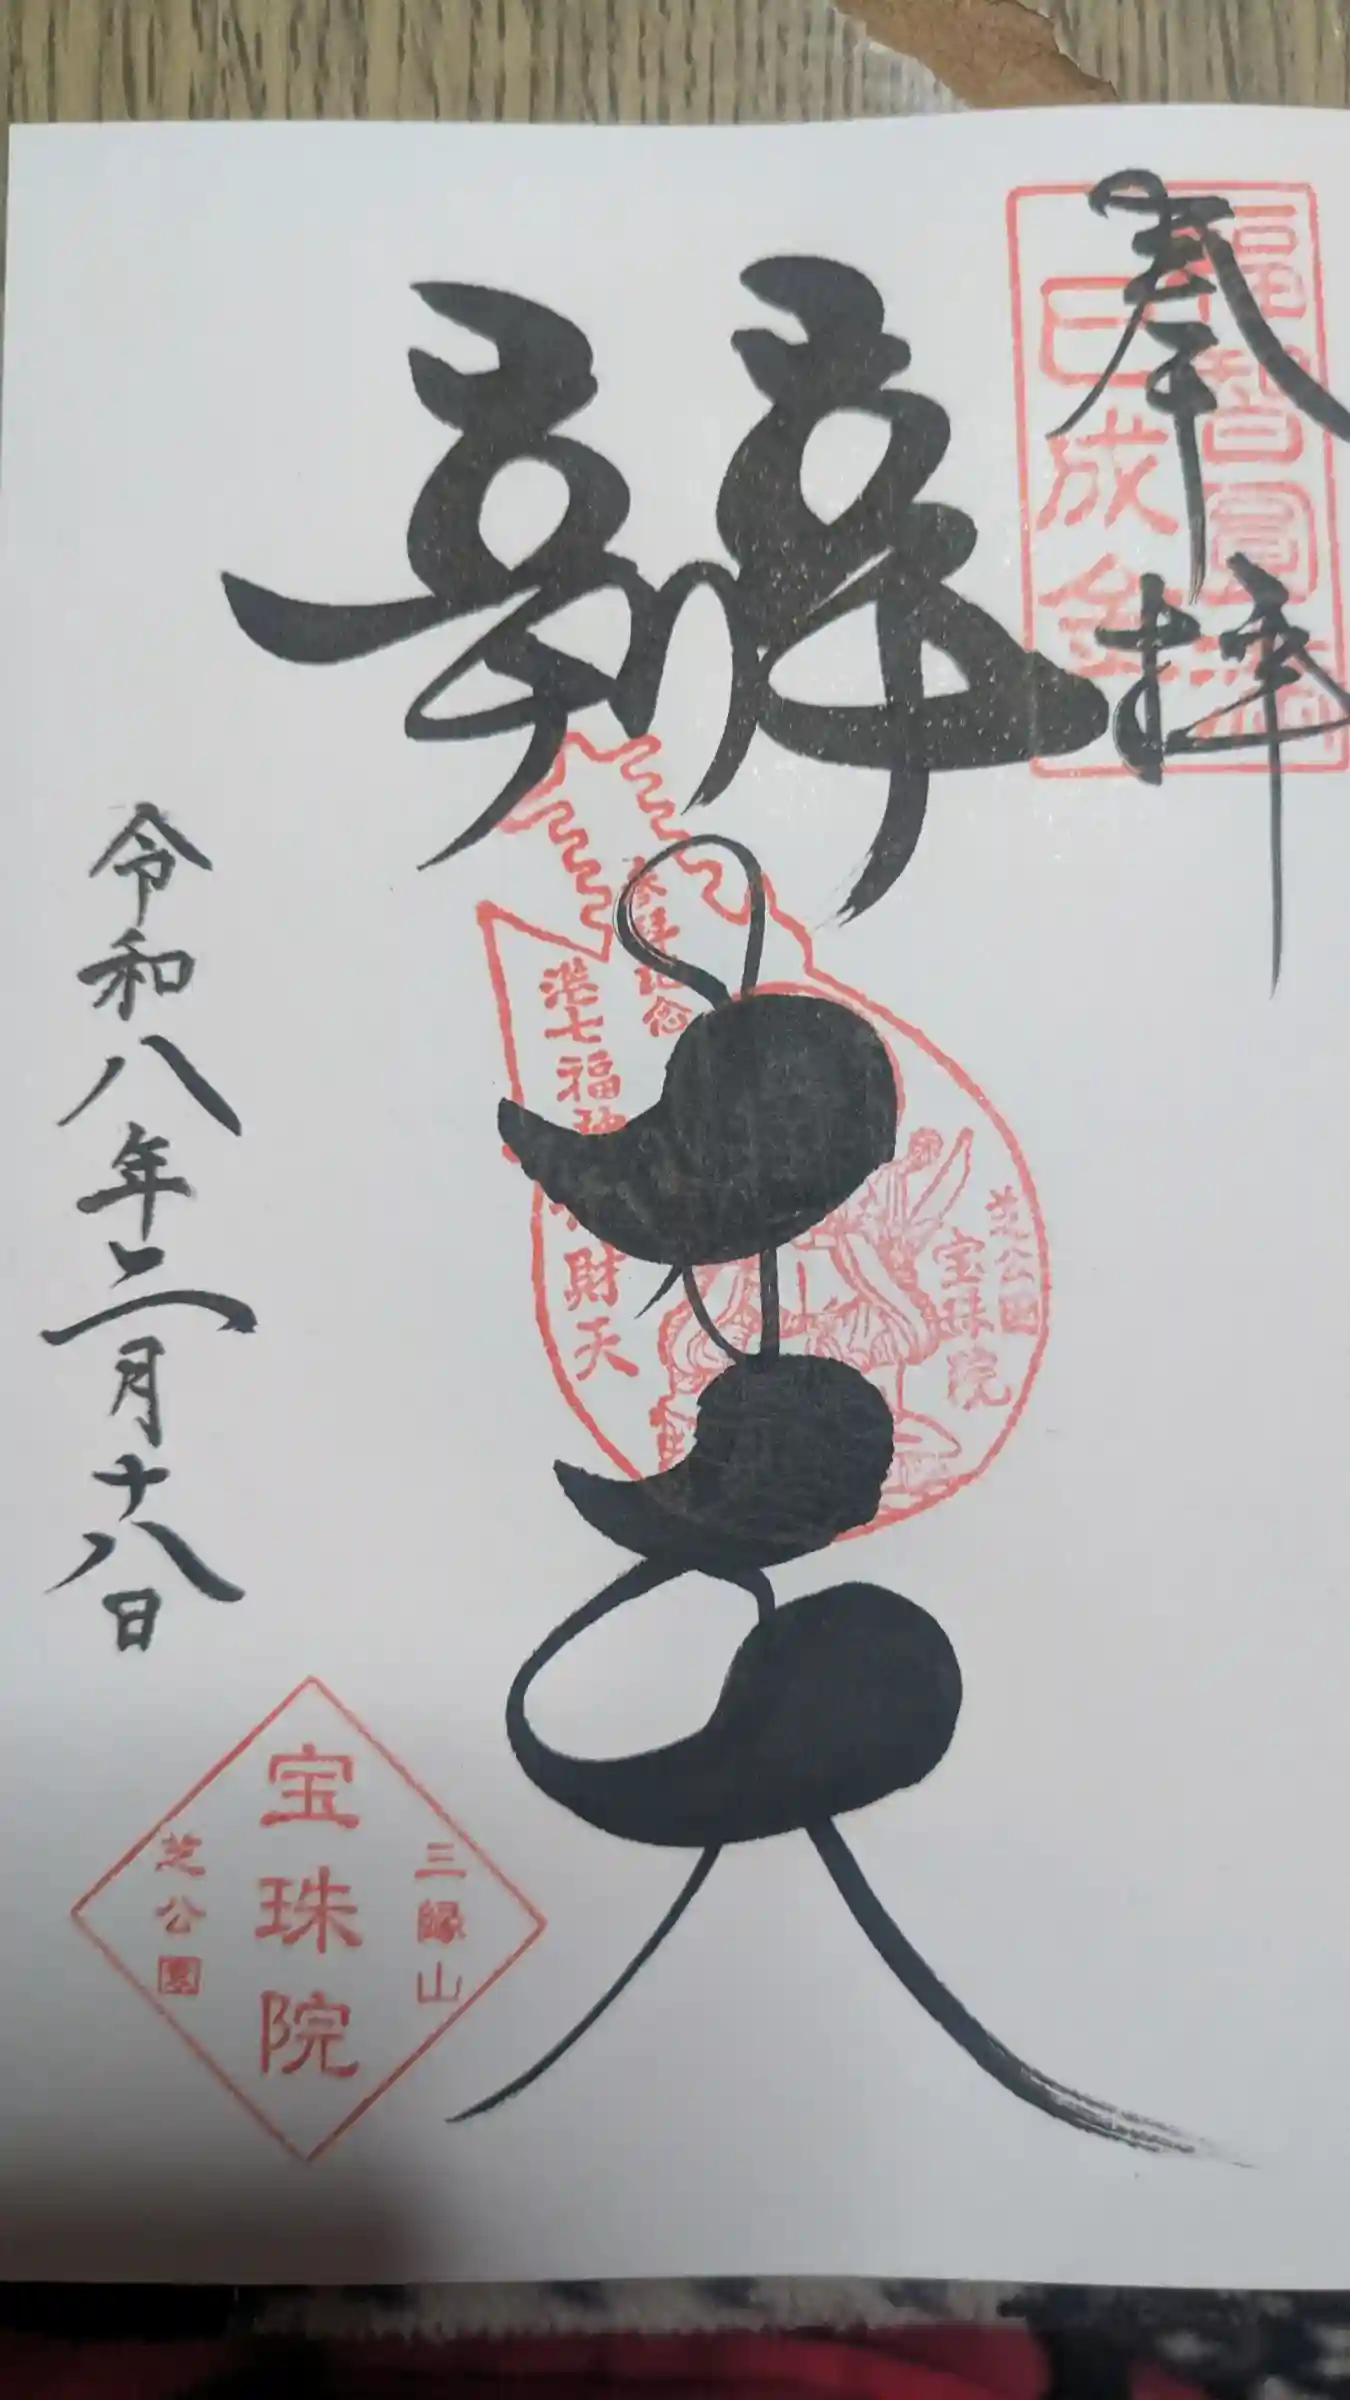 奉拝
福智圓満
巳成金
辨財天
参拝記念
港七福神
財天
芝公園
宝珠院
令和八年二月十八日
三縁山
宝珠院
芝公園